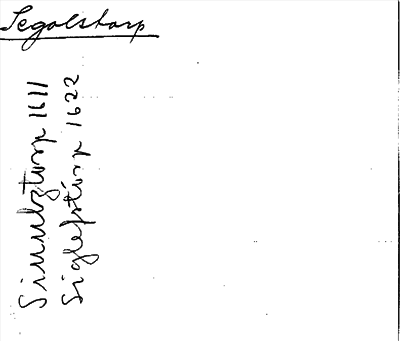 Segolstorp
Sinnulztorp 1611
Siglefstorp 1622